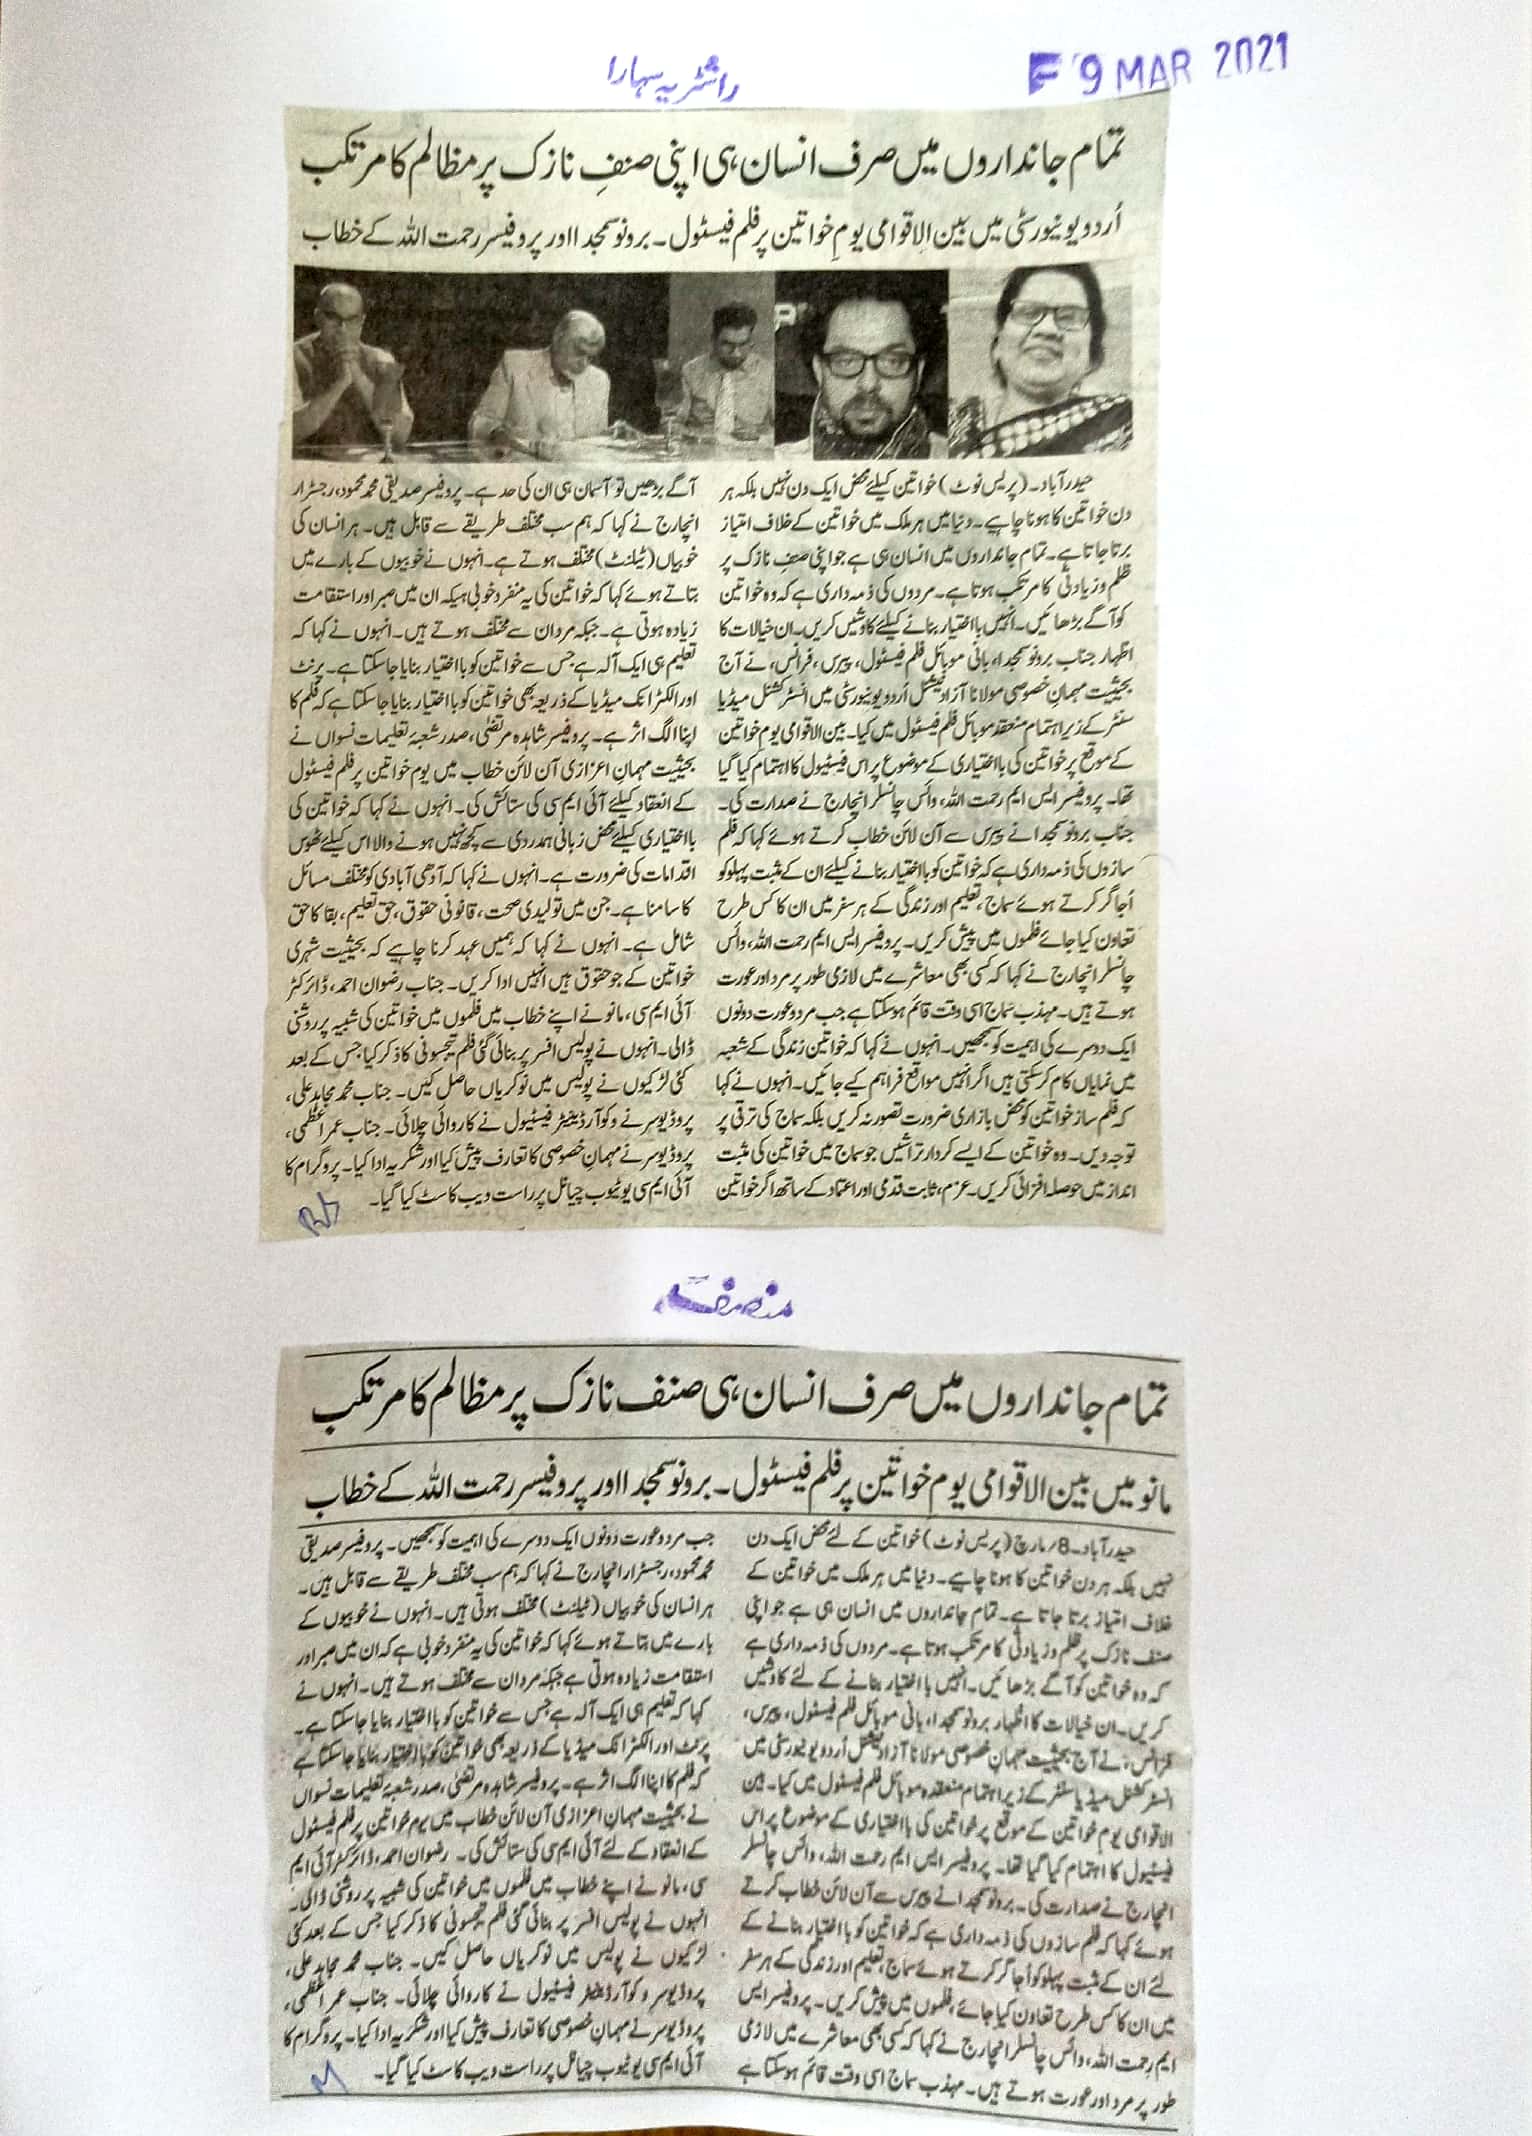 راشٹریہ سہارا
9 MAR 2021
تمام جانداروں میں صرف انسان ہی اپنی صنفِ نازک پر مظالم کا مرتکب
اُردو یونیورسٹی میں بین الاقوامی یومِ خواتین پر فلم فیسٹول۔ برونو سمجدا اور پروفیسر رحمت اللہ کے خطاب
حیدرآباد۔ (پریس نوٹ) خواتین کیلئے محض ایک دن نہیں بلکہ ہر
دن خواتین کا ہونا چاہیے۔ دنیا میں ہر ملک میں خواتین کے خلاف امتیاز
برتا جاتا ہے۔ تمام جانداروں میں انسان ہی ہے جو اپنی صنفِ نازک پر
ظلم و زیادتی کا مرتکب ہوتا ہے۔ مردوں کی ذمہ داری ہے کہ وہ خواتین
کو آگے بڑھائیں۔ انہیں بااختیار بنانے کیلئے کاوشیں کریں۔ ان خیالات کا
اظہار جناب برونو سمجدا، بانی موبائل فلم فیسٹول، پیرس، فرانس، نے آج
بحیثیت مہمانِ خصوصی مولانا آزاد نیشنل اُردو یونیورسٹی میں انسٹرکشنل میڈیا
سنٹر کے زیر اہتمام منعقدہ موبائل فلم فیسٹول میں کیا۔ بین الاقوامی یومِ خواتین
کے موقع پر خواتین کی بااختیاری کے موضوع پر اس فیسٹیول کا اہتمام کیا گیا
تھا۔ پروفیسر ایس ایم رحمت اللہ، وائس چانسلر انچارج نے صدارت کی۔
جناب برونو سمجدا نے پیرس سے آن لائن خطاب کرتے ہوئے کہا کہ فلم
سازوں کی ذمہ داری ہے کہ خواتین کو بااختیار بنانے کیلئے ان کے مثبت پہلو کو
اُجاگر کرتے ہوئے سماج، تعلیم اور زندگی کے ہر سفر میں ان کا کس طرح
تعاون کیا جائے فلموں میں پیش کریں۔ پروفیسر ایس ایم رحمت اللہ، وائس
چانسلر انچارج نے کہا کہ کسی بھی معاشرے میں لازمی طور پر مرد اور عورت
ہوتے ہیں۔ مہذب سماج اسی وقت قائم ہوسکتا ہے جب مرد و عورت دونوں
ایک دوسرے کی اہمیت کو سمجھیں۔ انہوں نے کہا کہ خواتین زندگی کے شعبہ
میں نمایاں کام کرسکتی ہیں اگر انہیں مواقع فراہم کیے جائیں۔ انہوں نے کہا
کہ فلم ساز خواتین کو محض بازاری ضرورت تصور نہ کریں بلکہ سماج کی ترقی پر
توجہ دیں۔ وہ خواتین کے ایسے کردار تراشیں جو سماج میں خواتین کی مثبت
انداز میں حوصلہ افزائی کریں۔ عزم، ثابت قدمی اور اعتماد کے ساتھ اگر خواتین
آگے بڑھیں تو آسمان ہی ان کی حد ہے۔ پروفیسر صدیقی محمد محمود، رجسٹرار
انچارج نے کہا کہ ہم سب مختلف طریقے سے قابل ہیں۔ ہر انسان کی
خوبیاں (ٹیلنٹ) مختلف ہوتے ہے۔ انہوں نے خوبیوں کے بارے میں
بتاتے ہوئے کہا کہ خواتین کی یہ منفرد خوبی ہیکہ ان میں صبر اور استقامت
زیادہ ہوتی ہے۔ جبکہ مرد ان سے مختلف ہوتے ہیں۔ انہوں نے کہا کہ
تعلیم ہی ایک آلہ ہے جس سے خواتین کو بااختیار بنایا جاسکتا ہے۔ پرنٹ
اور الکٹرانک میڈیا کے ذریعہ بھی خواتین کو بااختیار بنایا جاسکتا ہے کہ فلم کا
اپنا الگ اثر ہے۔ پروفیسر شاہدہ مرتضیٰ، صدر شعبۂ تعلیمات نسواں نے
بحیثیت مہمانِ اعزازی آن لائن خطاب میں یوم خواتین پر فلم فیسٹول
کے انعقاد کیلئے آئی ایم سی کی ستائش کی۔ انہوں نے کہا کہ خواتین کی
بااختیاری کیلئے محض زبانی ہمدردی سے کچھ نہیں ہونے والا اس کیلئے ٹھوس
اقدامات کی ضرورت ہے۔ انہوں نے کہا کہ آدھی آبادی کو مختلف مسائل
کا سامنا ہے۔ جن میں تولیدی صحت، قانونی حقوق، حق تعلیم، بقا کا حق
شامل ہے۔ انہوں نے کہا کہ ہمیں عہد کرنا چاہیے کہ بحیثیت شہری
خواتین کے جو حقوق ہیں انہیں ادا کریں۔ جناب رضوان احمد، ڈائرکٹر
آئی ایم سی، مانو نے اپنے خطاب میں فلموں میں خواتین کی شبیہ پر روشنی
ڈالی۔ انہوں نے پولیس افسر پر بنائی گئی فلم تیجسونی کا ذکر کیا جس کے بعد
کئی لڑکیوں نے پولیس میں نوکریاں حاصل کیں۔ جناب محمد مجاہد علی،
پروڈیوسر نے و کوآرڈینیٹر فیسٹیول نے کاروائی چلائی۔ جناب عمر اعظمی،
پروڈیوسر نے مہمانِ خصوصی کا تعارف پیش کیا اور شکریہ ادا کیا۔ پروگرام کا
آئی ایم سی یوٹیوب چیانل پر راست ویب کاسٹ کیا گیا۔
منصف
تمام جانداروں میں صرف انسان ہی صنف نازک پر مظالم کا مرتکب
مانو میں بین الاقوامی یومِ خواتین پر فلم فیسٹول۔ برونو سمجدا اور پروفیسر رحمت اللہ کے خطاب
حیدرآباد۔ 8/ مارچ (پریس نوٹ) خواتین کے لئے محض ایک دن
نہیں بلکہ ہر دن خواتین کا ہونا چاہیے۔ دنیا میں ہر ملک میں خواتین کے
خلاف امتیاز برتا جاتا ہے۔ تمام جانداروں میں انسان ہی ہے جو اپنی
صنف نازک پر ظلم و زیادتی کا مرتکب ہوتا ہے۔ مردوں کی ذمہ داری ہے
کہ وہ خواتین کو آگے بڑھائیں۔ انہیں بااختیار بنانے کے لئے کاوشیں
کریں۔ ان خیالات کا اظہار برونو سمجدا، بانی موبائل فلم فیسٹول، پیرس،
فرانس، نے آج بحیثیت مہمانِ خصوصی مولانا آزاد نیشنل اُردو یونیورسٹی میں
انسٹرکشنل میڈیا سنٹر کے زیر اہتمام منعقدہ موبائل فلم فیسٹول میں کیا۔ بین
الاقوامی یومِ خواتین کے موقع پر خواتین کی بااختیاری کے موضوع پر اس
فیسٹیول کا اہتمام کیا گیا تھا۔ پروفیسر ایس ایم رحمت اللہ، وائس چانسلر
انچارج نے صدارت کی۔ برونو سمجدا نے پیرس سے آن لائن خطاب کرتے
ہوئے کہا کہ فلم سازوں کی ذمہ داری ہے کہ خواتین کو بااختیار بنانے کے
لئے ان کے مثبت پہلو کو اُجاگر کرتے ہوئے سماج، تعلیم اور زندگی کے ہر سفر
میں ان کا کس طرح تعاون کیا جائے، فلموں میں پیش کریں۔ پروفیسر ایس
ایم رحمت اللہ، وائس چانسلر انچارج نے کہا کہ کسی بھی معاشرے میں لازمی
طور پر مرد اور عورت ہوتے ہیں۔ مہذب سماج اسی وقت قائم ہوسکتا ہے
جب مرد و عورت دونوں ایک دوسرے کی اہمیت کو سمجھیں۔ پروفیسر صدیقی
محمد محمود، رجسٹرار انچارج نے کہا کہ ہم سب مختلف طریقے سے قابل ہیں۔
ہر انسان کی خوبیاں (ٹیلنٹ) مختلف ہوتی ہیں۔ انہوں نے خوبیوں کے
بارے میں بتاتے ہوئے کہا کہ خواتین کی یہ منفرد خوبی ہے کہ ان میں صبر اور
استقامت زیادہ ہوتی ہے جبکہ مرد ان سے مختلف ہوتے ہیں۔ انہوں نے
کہا کہ تعلیم ہی ایک آلہ ہے جس سے خواتین کو بااختیار بنایا جاسکتا ہے۔
پرنٹ اور الکٹرانک میڈیا کے ذریعہ بھی خواتین کو بااختیار بنایا جاسکتا ہے
کہ فلم کا اپنا الگ اثر ہے۔ پروفیسر شاہدہ مرتضیٰ، صدر شعبۂ تعلیمات نسواں
نے بحیثیت مہمانِ اعزازی آن لائن خطاب میں یوم خواتین پر فلم فیسٹول
کے انعقاد کے لئے آئی ایم سی کی ستائش کی۔ رضوان احمد، ڈائرکٹر آئی ایم
سی، مانو نے اپنے خطاب میں فلموں میں خواتین کی شبیہ پر روشنی ڈالی۔
انہوں نے پولیس افسر پر بنائی گئی فلم تیجسونی کا ذکر کیا جس کے بعد کئی
لڑکیوں نے پولیس میں نوکریاں حاصل کیں۔ جناب محمد مجاہد علی،
پروڈیوسر و کوآرڈینیٹر فیسٹیول نے کاروائی چلائی۔ جناب عمر اعظمی،
پروڈیوسر نے مہمانِ خصوصی کا تعارف پیش کیا اور شکریہ ادا کیا۔ پروگرام کا
آئی ایم سی یوٹیوب چیانل پر راست ویب کاسٹ کیا گیا۔